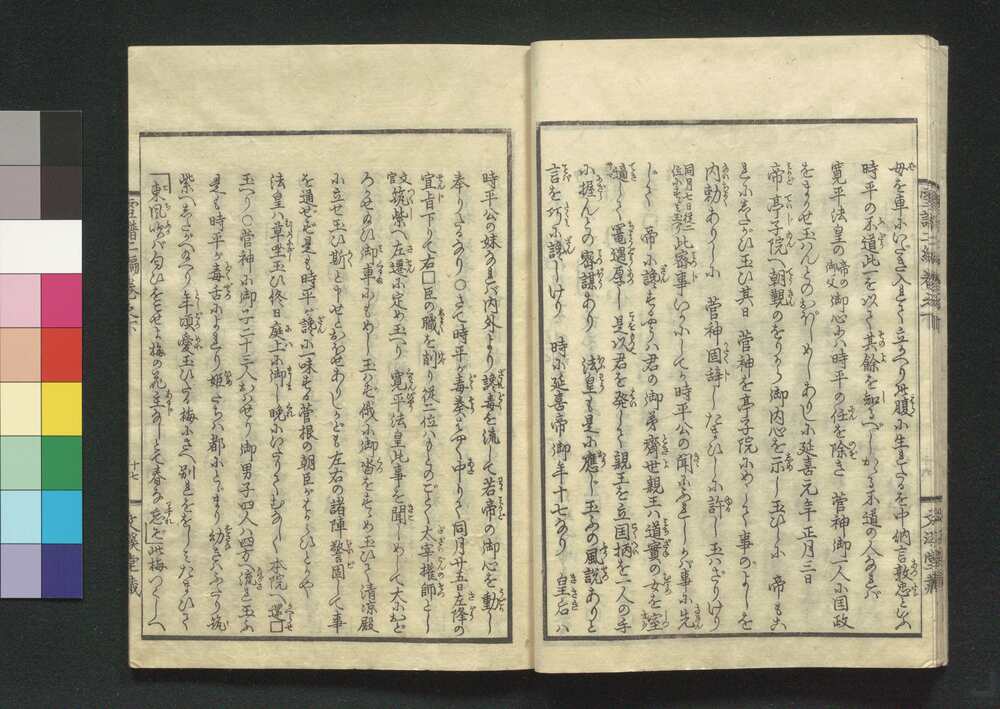 母を車にいだき入れて立かへり其腹に生れたるを中納言敦忠といふ
時平の不道此一を以て其餘を知るべしかゝる不道の人なれバ
寛平法皇の帝の御父御心にハ時平の任を除き 菅神御一人に国政
をまかせ玉んとのおぼしめしありしに延喜元年正月三日
帝亭子院へ朝覲のをりから御内心を示し玉ひしに 帝もこ
れにしたがひ玉ひ其日 菅神を亭子院にめして事のよしを
内勅ありしに 菅神固辞しなまひしに許し玉ハざりけり
同月七日従二位にすゝみ玉ふ此密事いかにしてか時平公の聞にふれしか事に先
じて 帝に讒するやうハ君の御弟齊世親王ハ道實の女を室
適して寵遇厚し是以君を廃して親王を立国柄を一人の手
に握んとの密謀あり 法皇も是に應じ玉ふの風説ありと
言を巧に讒しけり 時に延喜帝御年十七なり 皇后ハ
時平公の妹なれバ内外より讒毒を流して若帝の御心を動し
奉りたるなり○さて時平が毒奏はやく中りて同月廿五日左降の
宣旨下りて右□臣の職を削り従二位ハもとのごとく太宰権師とし
文官筑紫へ左遷に定め玉へり 寛平法皇此事を聞しめして大におど
ろかせ玉ひ御車にもめし玉ハず俄に御沓をすゝめ玉ひて清凉殿
に立せ玉ひ斯と申せとおほせありしかども左右の諸陣警固して事
を通ぜず是も時平が讒に一味する菅根の朝臣がはからひとぞ
法皇ハ草坐玉ひ終日庭上に御し晩にいたりてむなしく本院へ還□
玉へり○菅神に御子二十三人おはせり御男子四人ハ四方へ流され玉ふ
是も時平が毒舌によれり姫たちハ都にとゞまり幼きハふたり筑
紫へしたがへり年頃愛玉ひたる梅にさへ別ををしみたまひて
東風吹バ匂ひをこせよ梅の花主なしとて春な忘れそ此梅つくしへ
雪譜二編巻之下
十七
文溪堂藏
雪譜二編巻之下
文溪堂藏